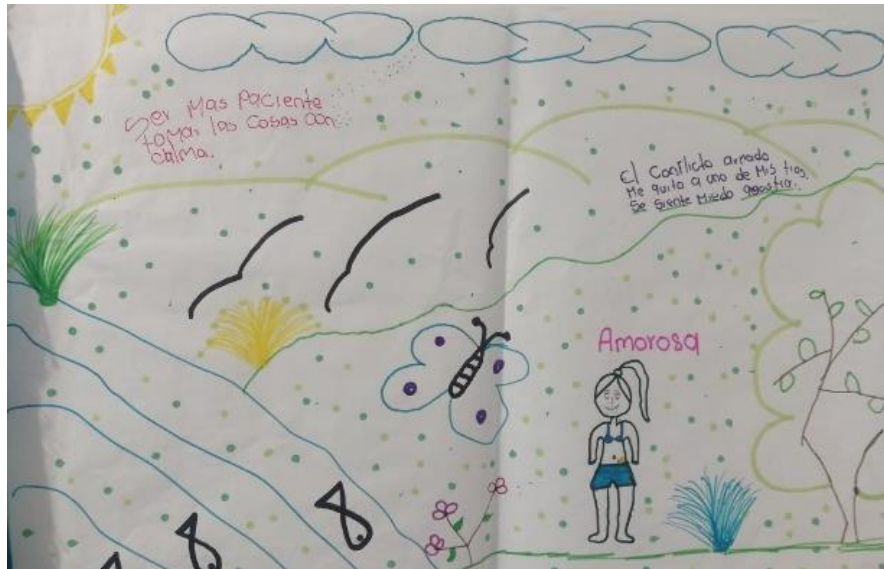 Ser Mas Paciente
tomar las Cosas con
calma.
El Conflicto armado
Me quito a uno de Mis tios.
Se siente Miedo agostia.
Amorosa